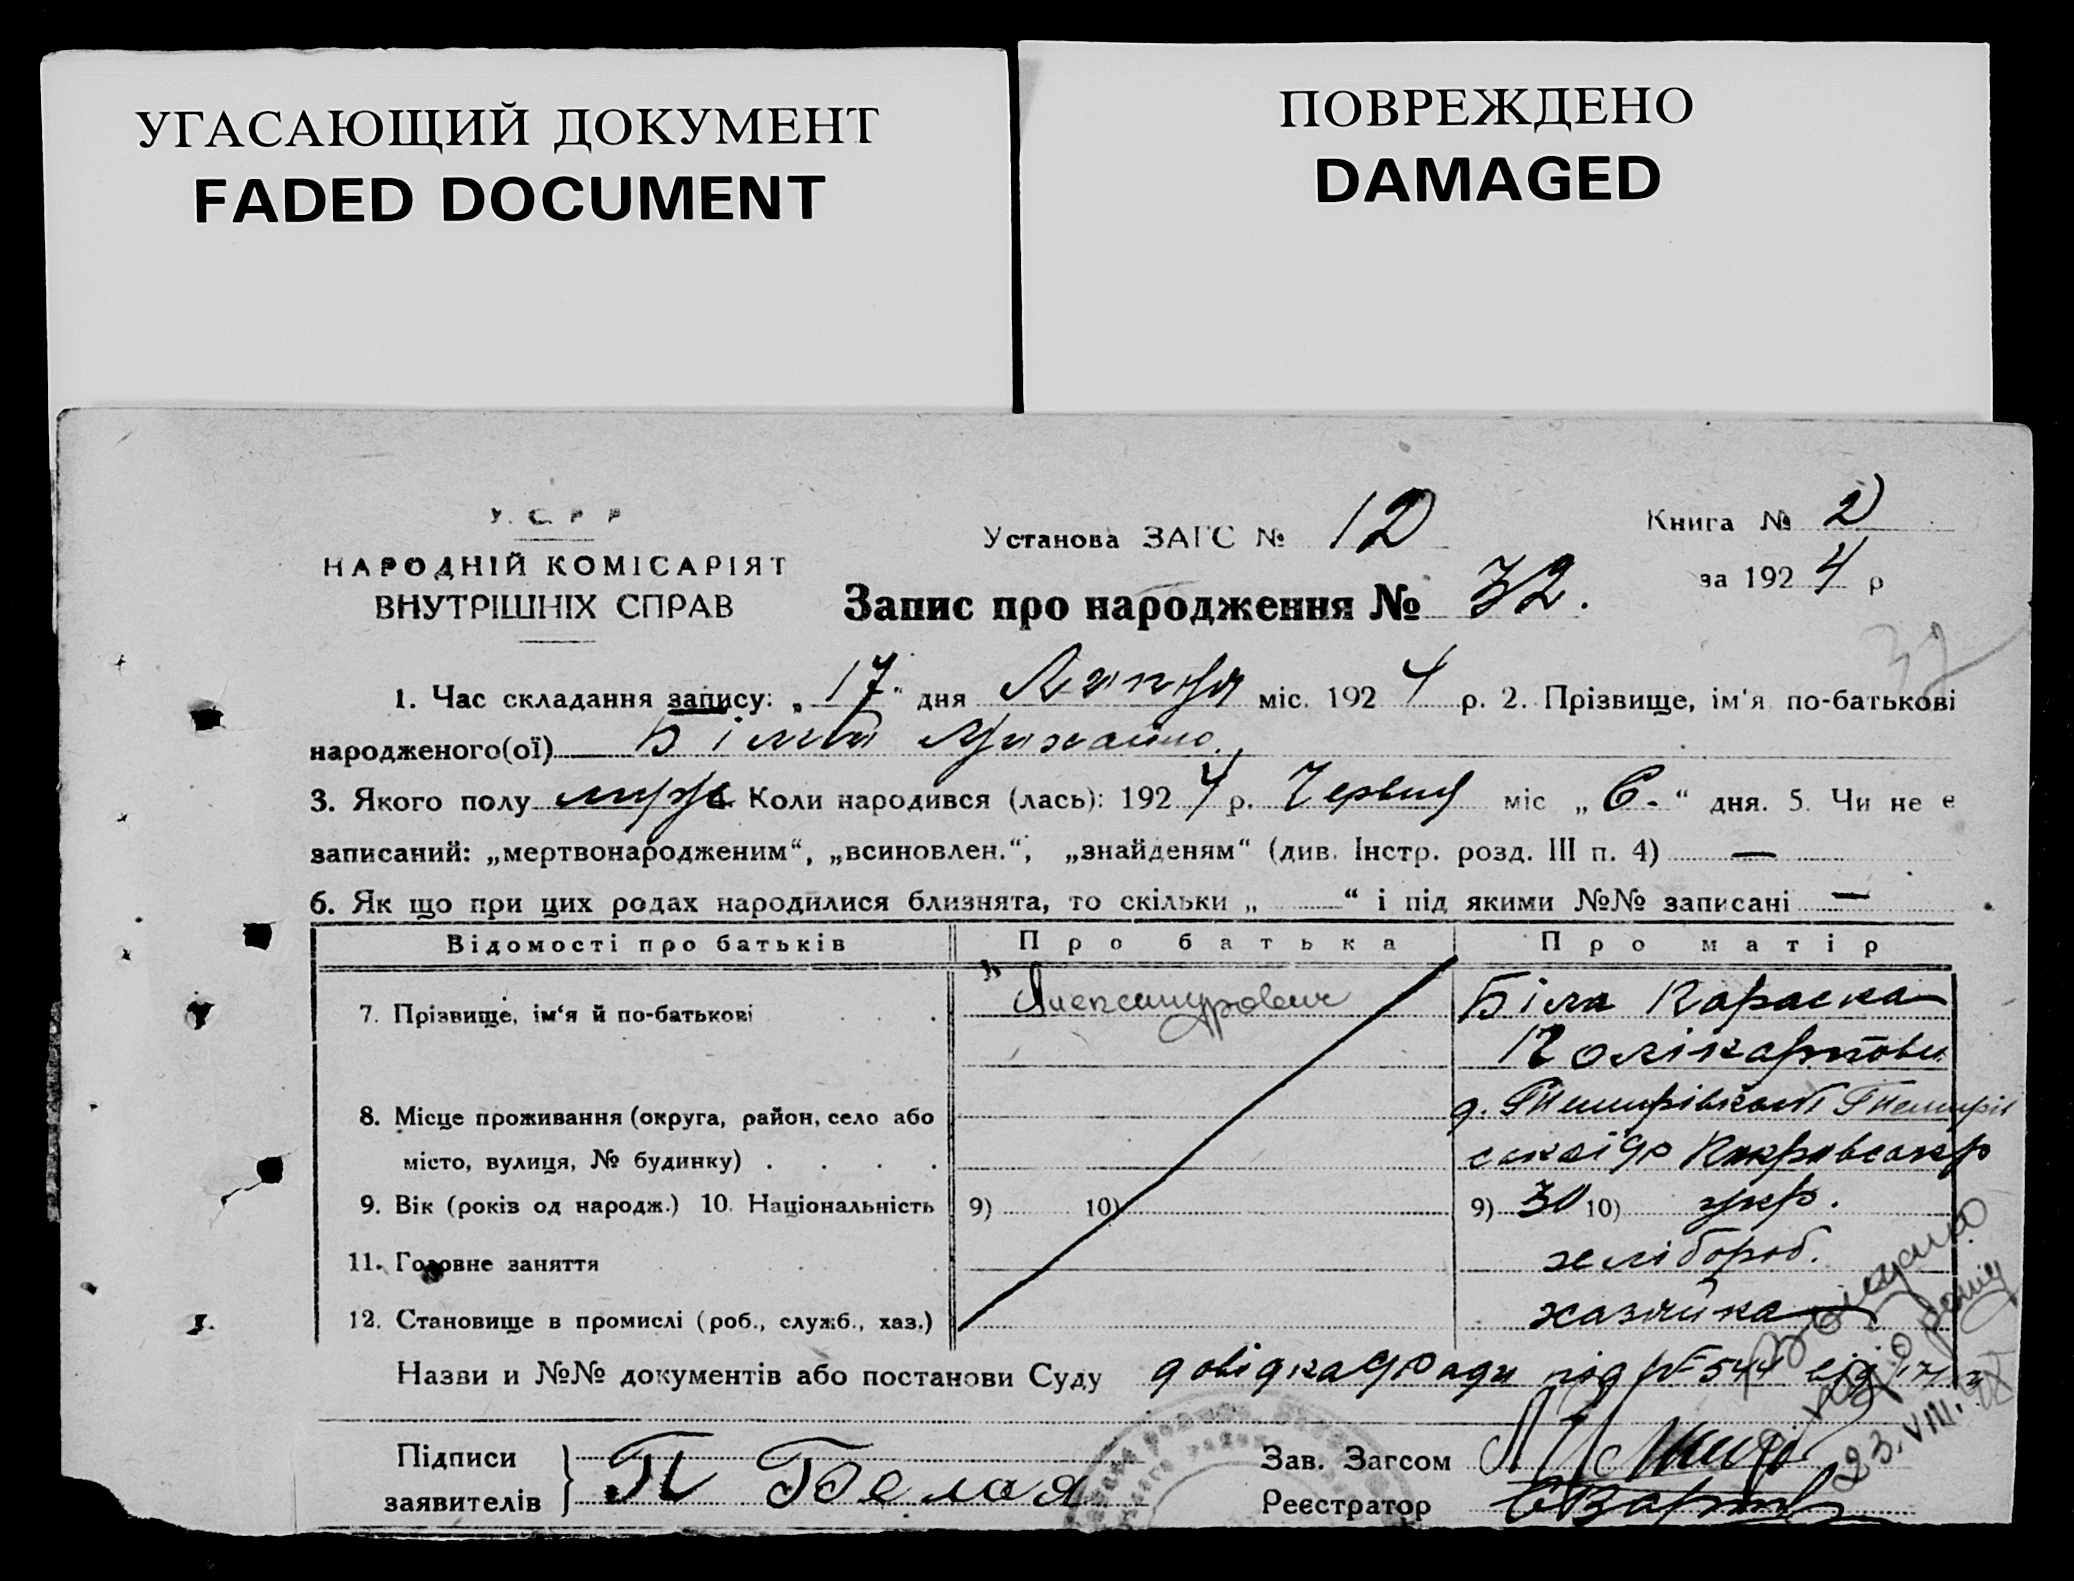 УГАСАЮЩИЙ ДОКУМЕНТ
FADED DOCUMENT
ПОВРЕЖДЕНО
DAMAGED
У. С. Р. Р.
НАРОДНІЙ КОМІСАРІЯТ
ВНУТРІШНІХ СПРАВ
Установа ЗАГС № 12
Книга № 2
за 1924 р
Запис про народження № 32.
32
1. Час складання запису: „17“ дня Липця міс. 1924 р. 2. Прізвище, ім'я по-батькові
народженого(ої) Білий Михайло
3. Якого полу муж. Коли народився (лась): 1924 р. Червця міс „6.“ дня. 5. Чи не є
записаний: „мертвонародженим“, „всиновлен.“, „знайденям“ (див. Інстр. розд. III п. 4) —
6. Як що при цих родах народилися близнята, то скільки „ “ і під якими №№ записані —
Відомості про батьків Про батька Про матір
7. Прізвище, ім'я й по-батькові Александрович Біла Параска
Полікарповн
8. Місце проживання (округа, район, село або
місто, вулиця, № будинку) Покровськ р
9. Вік (років од народж.) 10. Національність 9) 10) 9) 30 10) укр.
11. Головне заняття хлібороб.
12. Становище в промислі (роб., служб., хаз.) хазяйка
Назви и №№ документів або постанови Суду довідка С/Ради під № 544 від 17/
Підписи
заявителів П Белая
Зав. Загсом
Реєстратор
23. VIII.